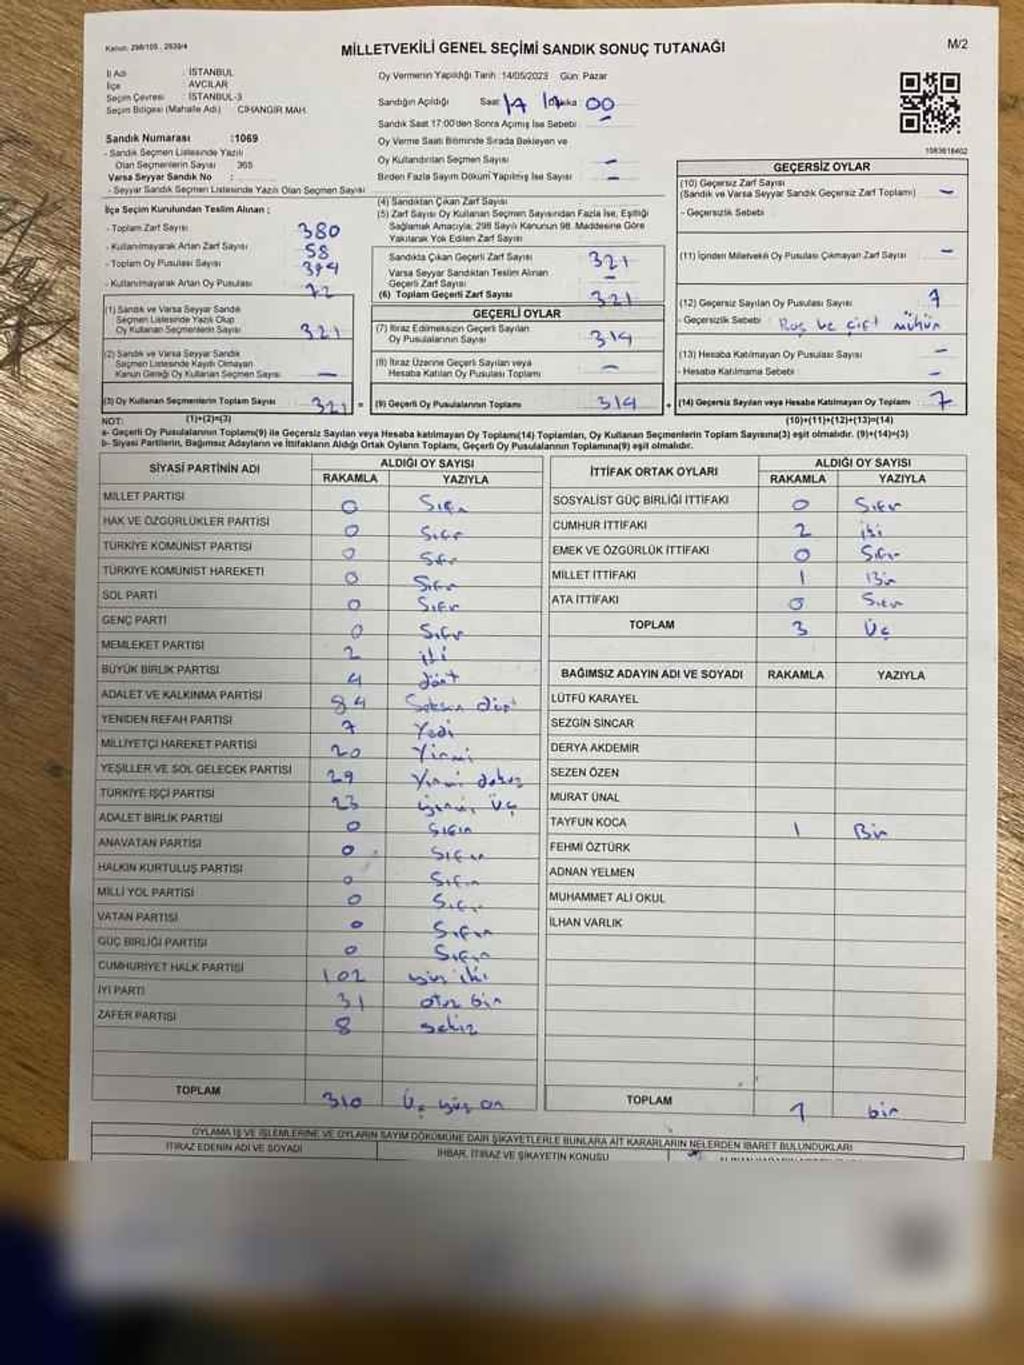 Kanun: 298/105 , 2839/4
MİLLETVEKİLİ GENEL SEÇİMİ SANDIK SONUÇ TUTANAĞI
M/2
İl Adı : İSTANBUL
İlçe : AVCILAR
Seçim Çevresi : İSTANBUL-3
Seçim Bölgesi (Mahalle Adı) CİHANGİR MAH.
Sandık Numarası :1069
- Sandık Seçmen Listesinde Yazılı
Olan Seçmenlerin Sayısı 365
Varsa Seyyar Sandık No :
- Seyyar Sandık Listesinde Yazılı Olan Seçmen Sayısı
Oy Vermenin Yapıldığı Tarih :14/05/2023 Gün: Pazar
Sandığın Açıldığı Saat 17 Dakika 00
Sandık Saat 17:00'den Sonra Açılmış İse Sebebi
Oy Verme Saati Bitiminde Sırada Bekleyen ve
Oy Kullandırılan Seçmen Sayısı –
Birden Fazla Sayım Döküm Yapılmış İse Sayısı –
1083618402
İlçe Seçim Kurulundan Teslim Alınan ;
- Toplam Zarf Sayısı 380
- Kullanılmayarak Artan Zarf Sayısı 58
- Toplam Oy Pusulası Sayısı 394
- Kullanılmayarak Artan Oy Pusulası 72
(1) Sandık ve Varsa Seyyar Sandık
Seçmen Listesinde Yazılı Olup
Oy Kullanan Seçmenlerin Sayısı 321
(2) Sandık ve Varsa Seyyar Sandık
Seçmen Listesinde Kayıtlı Olmayan
Kanun Gereği Oy Kullanan Seçmen Sayısı –
(3) Oy Kullanan Seçmenlerin Toplam Sayısı 321 =
(4) Sandıktan Çıkan Zarf Sayısı
(5) Zarf Sayısı Oy Kullanan Seçmen Sayısından Fazla İse, Eşitliği
Sağlamak Amacıyla; 298 Sayılı Kanunun 98. Maddesine Göre
Yakılarak Yok Edilen Zarf Sayısı
Sandıkta Çıkan Geçerli Zarf Sayısı 321
Varsa Seyyar Sandıktan Teslim Alınan
Geçerli Zarf Sayısı –
(6) Toplam Geçerli Zarf Sayısı 321
GEÇERLİ OYLAR
(7) İtiraz Edilmeksizin Geçerli Sayılan
Oy Pusulalarının Sayısı 314
(8) İtiraz Üzerine Geçerli Sayılan veya
Hesaba Katılan Oy Pusulası Toplamı –
(9) Geçerli Oy Pusulalarının Toplamı 314 +
GEÇERSİZ OYLAR
(10) Geçersiz Zarf Sayısı
(Sandık ve Varsa Seyyar Sandık Geçersiz Zarf Toplamı) –
- Geçersizlik Sebebi
(11) İçinden Milletvekili Oy Pusulası Çıkmayan Zarf Sayısı –
(12) Geçersiz Sayılan Oy Pusulası Sayısı 7
- Geçersizlik Sebebi Boş ve çift mühür
(13) Hesaba Katılmayan Oy Pusulası Sayısı –
- Hesaba Katılmama Sebebi –
(14) Geçersiz Sayılan veya Hesaba Katılmayan Oy Toplamı 7
NOT: (1)+(2)=(3) (10)+(11)+(12)+(13)=(14)
a- Geçerli Oy Pusulalarının Toplamı(9) ile Geçersiz Sayılan veya Hesaba katılmayan Oy Toplamı(14) Toplamları, Oy Kullanan Seçmenlerin Toplam Sayısına(3) eşit olmalıdır. (9)+(14)=(3)
b- Siyasi Partilerin, Bağımsız Adayların ve İttifakların Aldığı Ortak Oyların Toplamı, Geçerli Oy Pusulalarının Toplamına(9) eşit olmalıdır.
SİYASİ PARTİNİN ADI ALDIĞI OY SAYISI
RAKAMLA YAZIYLA
MİLLET PARTİSİ 0 Sıfır
HAK VE ÖZGÜRLÜKLER PARTİSİ 0 Sıfır
TÜRKİYE KOMÜNİST PARTİSİ 0 Sıfır
TÜRKİYE KOMÜNİST HAREKETİ 0 Sıfır
SOL PARTİ 0 Sıfır
GENÇ PARTİ 0 Sıfır
MEMLEKET PARTİSİ 2 iki
BÜYÜK BİRLİK PARTİSİ 4 dört
ADALET VE KALKINMA PARTİSİ 84 Seksen dört
YENİDEN REFAH PARTİSİ 7 Yedi
MİLLİYETÇİ HAREKET PARTİSİ 20 Yirmi
YEŞİLLER VE SOL GELECEK PARTİSİ 29 Yirmi dokuz
TÜRKİYE İŞÇİ PARTİSİ 23 yirmi üç
ADALET BİRLİK PARTİSİ 0 Sıfır
ANAVATAN PARTİSİ 0 Sıfır
HALKIN KURTULUŞ PARTİSİ 0 Sıfır
MİLLİ YOL PARTİSİ 0 Sıfır
VATAN PARTİSİ 0 Sıfır
GÜÇ BİRLİĞİ PARTİSİ 0 Sıfır
CUMHURİYET HALK PARTİSİ 102 yüz iki
İYİ PARTİ 31 otuz bir
ZAFER PARTİSİ 8 sekiz
TOPLAM 310 Üç yüz on
İTTİFAK ORTAK OYLARI ALDIĞI OY SAYISI
RAKAMLA YAZIYLA
SOSYALİST GÜÇ BİRLİĞİ İTTİFAKI 0 Sıfır
CUMHUR İTTİFAKI 2 iki
EMEK VE ÖZGÜRLÜK İTTİFAKI 0 Sıfır
MİLLET İTTİFAKI 1 Bir
ATA İTTİFAKI 0 Sıfır
TOPLAM 3 Üç
BAĞIMSIZ ADAYIN ADI VE SOYADI RAKAMLA YAZIYLA
LÜTFÜ KARAYEL
SEZGİN SİNCAR
DERYA AKDEMİR
SEZEN ÖZEN
MURAT ÜNAL
TAYFUN KOCA 1 Bir
FEHMİ ÖZTÜRK
ADNAN YELMEN
MUHAMMET ALİ OKUL
İLHAN VARLIK
TOPLAM 1 bir
OYLAMA İŞ VE İŞLEMLERİNE VE OYLARIN SAYIM DÖKÜMÜNE DAİR ŞİKAYETLERLE BUNLARA AİT KARARLARIN NELERDEN İBARET BULUNDUKLARI
İTİRAZ EDENİN ADI VE SOYADI İHBAR, İTİRAZ VE ŞİKAYETİN KONUSU